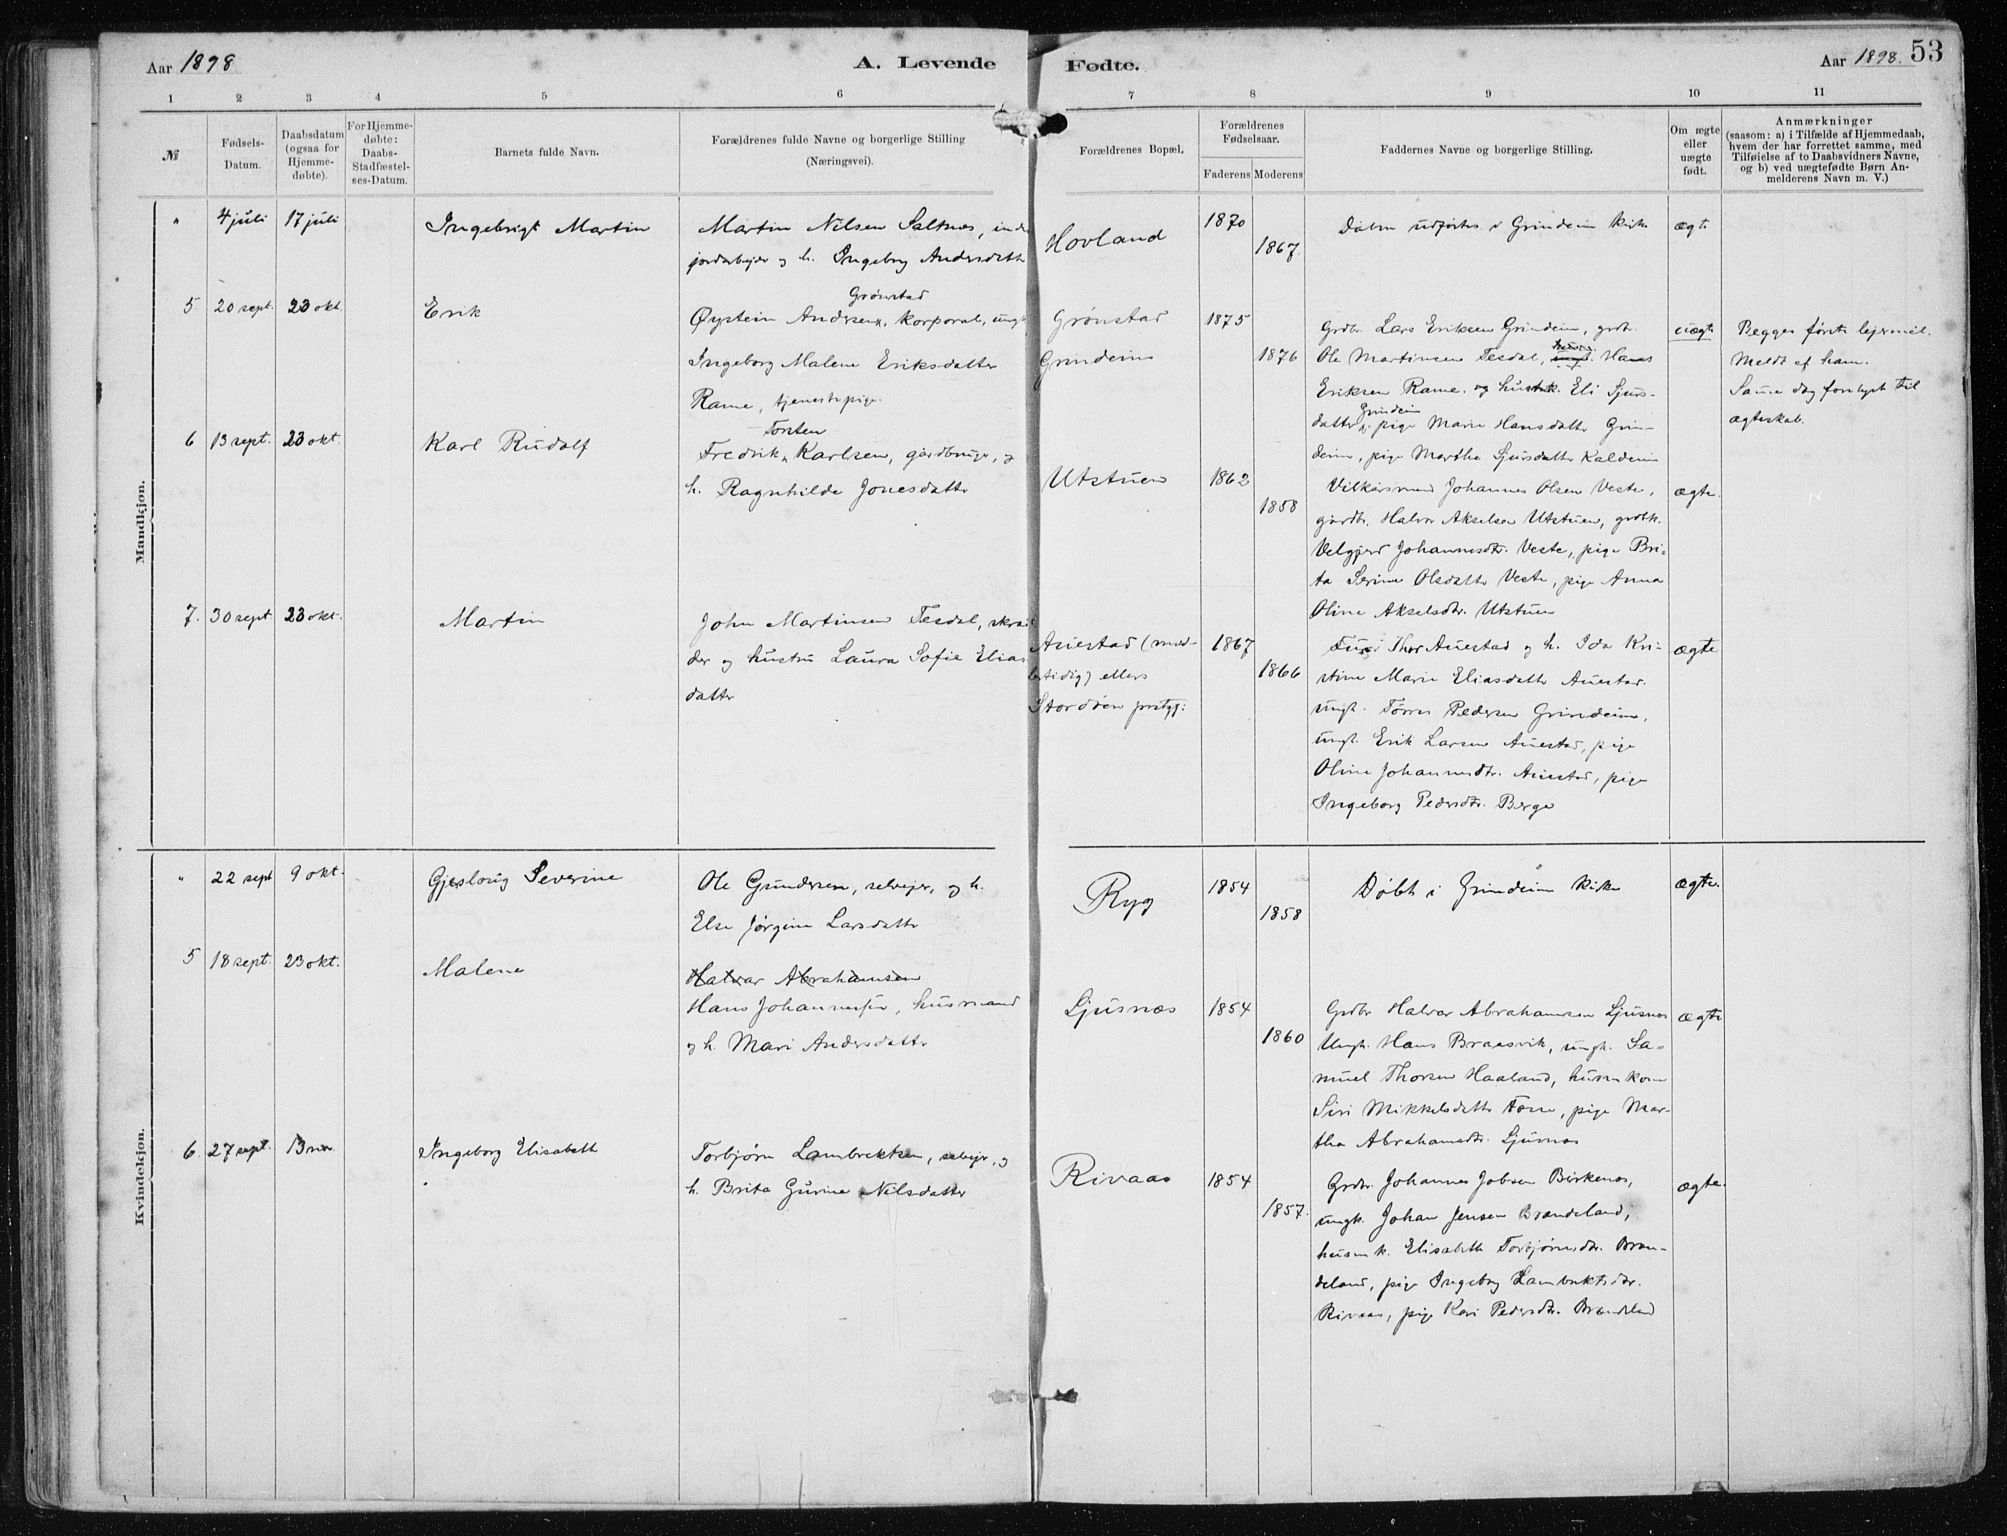 Aar 1898
A. Levende
Fødte.
Aar 1898. 53
1 2 3 4 5 6 7 8 9 10 11
№
Fødsels-
Datum.
Daabsdatum
(ogsaa for
Hjemme-
døbte).
For Hjemme-
døbte:
Daabs-
Stadfæstel-
ses-Datum.
Barnets fulde Navn.
Forældrenes fulde Navne og borgerlige Stilling
(Næringsvei).
Forældrenes Bopæl.
Forældrenes
Fødselsaar.
Faderens Moderens
Faddernes Navne og borgerlige Stilling.
Om ægte
eller
uægte
født.
Anmærkninger
(saasom: a) i Tilfælde af Hjemmedaab,
hvem der har forrettet samme, med
Tilføielse af to Daabsvidners Navne,
og b) ved uægtefødte Børn An-
melderens Navn m. V.)
Mandkjøn.
" 4 juli 17 juli
Ingebrigt Martin
Martin Nilsen Saltnes,
jordarbejder og h. Ingeborg Andersdatter
Hovland
1870
1867.
Daben udførtes i Grindeim kirke
ægte
5 20 sept. 23 okt.
Erik
Grønstad
Øystein Andersen, korporal, ungk.
Ingeborg Malene Eriksdatter
Rame, tjenestepige.
Grønstad
Grindeim
1875
1876
Grdbr. Lars Eriksen Grindeim, grdbr.
Ole Martinsen Tesdal, Hans
Eriksen Rame og hustru Eli Sjurs-
Grindeim
datter, pige Marie Hansdatter Grin-
deim, pige Martha Sjursdatter Kaldeim
uægte
Begges første lejermål.
Meldt af ham.
Samme dag forlyst til
ægteskab.
6 13 sept. 23 okt.
Karl Rudolf
Torsten
Fredrik Karlsen, gårdbruger, og
h. Ragnhilde Jonesdatter
Utstuen
1862
1858
Vilkårsmand Johannes Olsen Veste,
gårdbr. Halvor Akselsen Utstuen, grdbk.
Velgjerd Johannesdtr. Veste, pige Bri-
ta Serine Olsdatter Veste, pige Anna
Oline Akselsdtr. Utstuen
ægte.
7. 30 sept. 23 okt.
Martin
John Martinsen Tesdal, skræd-
der og hustru Laura Sofie Elias
datter
Auestad (mid-
lertidig) ellers
Stordøen prstgj.
1867
1866
Thor Auestad og h. Ida Kri-
stine Marie Eliasdatter Auestad.
ungk. Tørres Pedersen Grindeim,
ungk. Erik Larsen Auestad, pige
Oline Johannesdtr. Auestad, pige
Ingeborg Pedersdtr. Berge
ægte
Kvindekjøn.
" 22 sept 9 okt.
Gjeslaug Severine
Ole Gundersen, selvejer, og h.
Else Jørgine Larsdatter
Ryg
1854
1858
Døbt i Grindeim kirke
ægte.
5 18 sept. 23 okt.
Malene
Halvar Abrahamsen
Hans Johannessen, husmand
og h. Mari Andersdatter
Ljusnæs
1854
1860
Grdbr. Halvor Abrahamsen Ljusnæs
Ungk. Hans Braasvik, ungk. Sa-
muel Thorsen Haaland, husm kone
Siri Mikkelsdatter Torre, pige Mar-
tha Abrahamsdtr. Ljusnæs
ægte
6. 27 sept. 13 nov.
Ingeborg Elisabeth
Torbjørn Lambrektsen, selvejer, og
h. Brita Gurine Nilsdatter
Rivaas
1854
1857.
Grdbr. Johannes Jobsen Birkenæs,
ungk. Johan Jensen Brandeland,
husm k. Elisabeth Torbjørnsdtr. Bran-
deland, pige Ingeborg Lambrektsdtr.
Rivaas, pige Kari Pedersdtr. Brandeland
ægte.